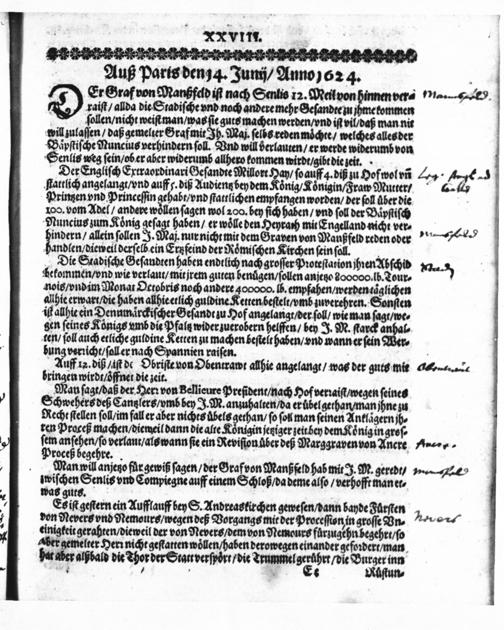 XXVIII.
Auß Paris den 14. Junij/ Anno 1624.
DEr Graf von Manßfeld ist nach Senlis 12. Meil von hinnen ver-
raist/ allda die Stadische vnd noch andere mehr Gesandte zu jhme kommen
sollen/ nicht weist man/ was sie guts machen werden/ vnd ist vil/ daß man nit
will zulassen/ daß gemelter Graf mit Jh. Maj. selbs reden möchte/ welches alles der
Bäpstische Nuncius verhindern soll. Vnd will verlauten/ er werde widerumb von
Senlis weg sein/ ob er aber widerumb allhero kommen wirdt/ gibt die zeit.
Der Englisch Extraordinari Gesandte Millort Hay/ so auff 4. diß zu Hof wol vñ
stattlich angelangt/ vnd auff 5. diß Audientz bey dem König/ Königin/ Fraw Mutter/
Printzen vnd Princessin gehabt/ vnd stattlichen empfangen worden/ der soll über die
100. vom Adel/ andere wöllen sagen wol 200. bey sich haben/ vnd soll der Bäpstisch
Nuncius zum König gesagt haben/ er wölle den Heyrath mit Engelland nicht ver-
hindern/ allein sollen J. Maj. nur nicht mit dem Graven von Manßfeld reden oder
handlen/ dieweil derselb ein Ertzfeind der Römischen Kirchen sein soll.
Die Stadische Gesandten haben endtlich nach grosser Protestation jhren Abschid
bekommen/ vnd wie verlaut/ mit jrem gutem benügen/ sollen anjetzo 800000. lb. Tour-
nois/ vnd im Monat Octobris noch andere 400000. lb. empfahen/ werden täglichen
allhie erwart/ die haben allhie etlich guldine Ketten bestelt/ vmb zuverehren. Sonsten
ist allhie ein Dennmärckischer Gesandt zu Hof angelangt/ der soll/ wie man sagt/ we-
gen seines Königs vmb die Pfaltz wider zuerobern helffen/ bey J. M. starck anhal-
ten/ soll auch etliche guldine Ketten zu machen bestelt haben/ vnd wann er sein Wer-
bung vericht/ soll er nach Spannien raisen.
Auff 12. diß/ ist der Obriste von Obentrawt allhie angelangt/ was der guts mit
bringen wirdt/ öffnet die zeit.
Man sagt/ daß der Herr von Bellieure President/ nach Hof verraist/ wegen seines
Schwehers deß Cantzlers/ vmb bey J. M. anzuhalten/ da er übel gethan/ man jhne zu
Recht stellen soll/ im fall er aber nichts übels gethan/ so soll man seinen Anklägern jh-
ren Proceß machen/ dieweil dann die alte Königin jetziger zeit bey dem König in gros-
sem ansehen/ so verlaut/ als wann sie ein Revision über deß Marggraven von Ancre
Proceß begehre.
Man will anjetzo für gewiß sagen/ der Graf von Manßfeld hab mit J. M. geredt/
zwischen Senlis vnd Compiegne auff einem Schloß/ da deme also/ verhofft man et-
was guts.
Es ist gestern ein Aufflauff bey S. Andreas kirchen gewesen/ dann bayde Fürsten
von Nevers vnd Nemours/ wegen deß Vorgangs mit der Procession/ in grosse Vn-
einigkeit gerahten/ dieweil der von Nevers/ dem von Nemours fürzugehn begehrt/ so
aber gemelter Herr nicht gestatten wöllen/ haben derowegen einander gefordert/ man
hat aber alßbald die Thor der Statt verspört/ die Trummel gerührt/ die Burger inn
Rüstun-
Mannsfeld.
Mannsfeld
Mannsfeld
Nevers